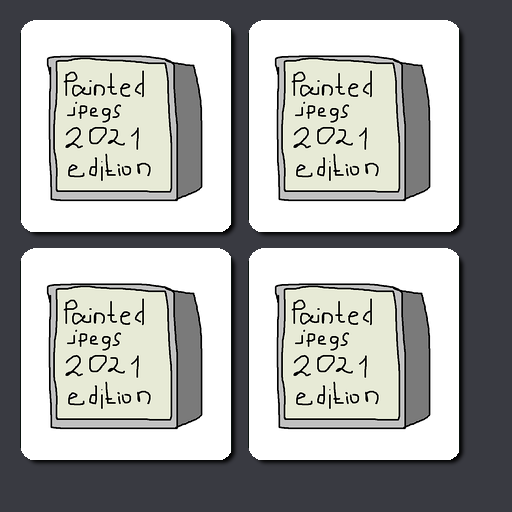 Painted
jpegs
2021
edition
Painted
jpegs
2021
edition
Painted
jpegs
2021
edition
Painted
jpegs
2021
edition